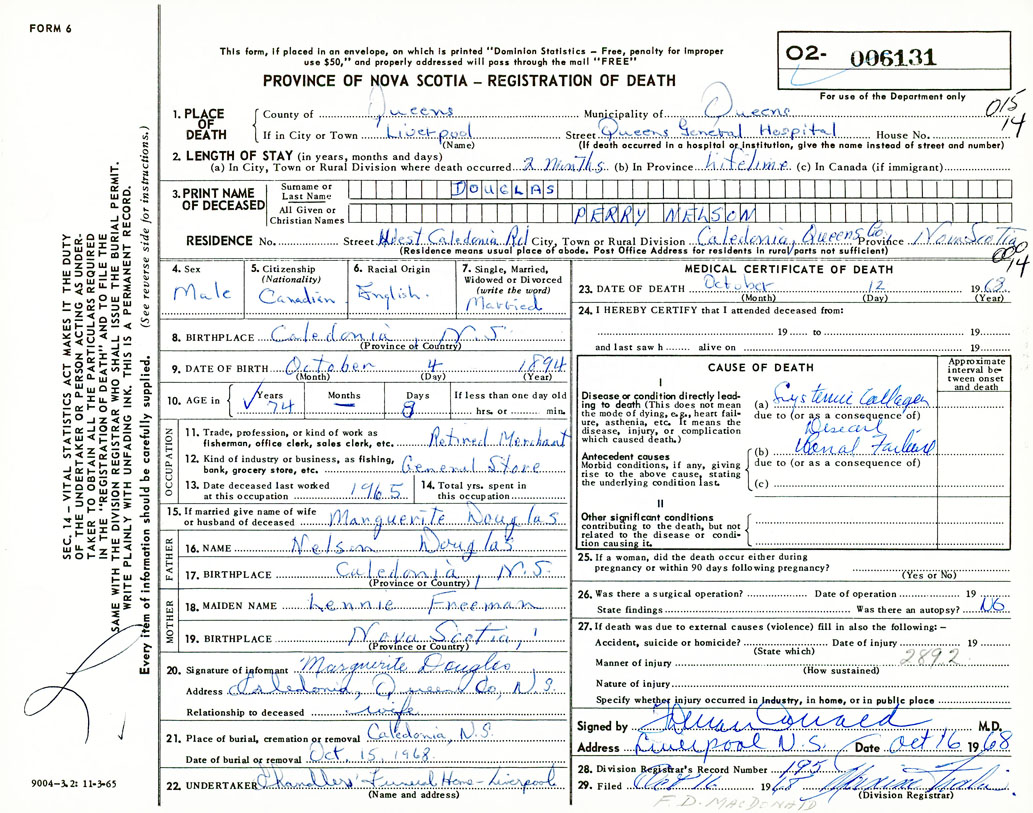 FORM 6
This form, if placed in an envelope, on which is printed "Dominion Statistics – Free, penalty for improper
use $50," and properly addressed will pass through the mail "FREE"
PROVINCE OF NOVA SCOTIA – REGISTRATION OF DEATH
02- 006131
For use of the Department only
015
14
1. PLACE OF DEATH
County of Queens Municipality of Queens
If in City or Town Liverpool Street Queens General Hospital House No.
(Name) (If death occurred in a hospital or institution, give the name instead of street and number)
2. LENGTH OF STAY (in years, months and days)
(a) In City, Town or Rural Division where death occurred 2 Months (b) In Province Lifetime (c) In Canada (if immigrant)
3. PRINT NAME OF DECEASED
Surname or Last Name DOUGLAS
All Given or Christian Names PERRY NELSON
RESIDENCE No. Street West Caledonia Rd City, Town or Rural Division Caledonia, Queens Co. Province Nova Scotia
(Residence means usual place of abode. Post Office Address for residents in rural parts not sufficient)
000
14
4. Sex Male
5. Citizenship (Nationality) Canadian
6. Racial Origin English.
7. Single, Married, Widowed or Divorced (write the word) Married
8. BIRTHPLACE Caledonia, N.S.
(Province or Country)
9. DATE OF BIRTH October 4 1894
(Month) (Day) (Year)
10. AGE in Years 74 Months – Days 8 If less than one day old hrs. or min.
OCCUPATION
11. Trade, profession, or kind of work as fisherman, office clerk, sales clerk, etc. Retired Merchant
12. Kind of industry or business, as fishing, bank, grocery store, etc. General Store
13. Date deceased last worked at this occupation 1965 14. Total yrs. spent in this occupation
15. If married give name of wife or husband of deceased Marguerite Douglas
FATHER
16. NAME Nelson Douglas
17. BIRTHPLACE Caledonia, N.S.
(Province or Country)
MOTHER
18. MAIDEN NAME Lennie Freeman
19. BIRTHPLACE Nova Scotia,
(Province or Country)
20. Signature of informant Marguerite Douglas
Address Caledonia, Queens Co, N.S.
Relationship to deceased wife
21. Place of burial, cremation or removal Caledonia, N.S.
Date of burial or removal Oct. 15, 1968
22. UNDERTAKER Chandlers' Funeral Home - Liverpool
(Name and address)
MEDICAL CERTIFICATE OF DEATH
23. DATE OF DEATH October 12 1968
(Month) (Day) (Year)
24. I HEREBY CERTIFY that I attended deceased from:
19 to 19
and last saw h alive on 19
CAUSE OF DEATH
Approximate interval between onset and death
I
Disease or condition directly leading to death (This does not mean the mode of dying, e.g., heart failure, asthenia, etc. It means the disease, injury, or complication which caused death.)
(a) Systemic Collagen
due to (or as a consequence of)
Disease
Antecedent causes
Morbid conditions, if any, giving rise to the above cause, stating the underlying condition last.
(b) Renal Failure
due to (or as a consequence of)
(c)
II
Other significant conditions contributing to the death, but not related to the disease or condition causing it.
25. If a woman, did the death occur either during
pregnancy or within 90 days following pregnancy?
(Yes or No)
26. Was there a surgical operation? Date of operation 19
State findings Was there an autopsy? No
27. If death was due to external causes (violence) fill in also the following: –
Accident, suicide or homicide? Date of injury 19
(State which)
2892
Manner of injury
(How sustained)
Nature of injury
Specify whether injury occurred in industry, in home, or in public place
Signed by M.D.
Address Liverpool N.S. Date Oct 16 1968
28. Division Registrar's Record Number 195
29. Filed Oct 16 1968
(Division Registrar)
F. D. MACDONALD
SEC. 14 – VITAL STATISTICS ACT MAKES IT THE DUTY
OF THE UNDERTAKER OR PERSON ACTING AS UNDER-
TAKER TO OBTAIN ALL THE PARTICULARS REQUIRED
IN THE "REGISTRATION OF DEATH" AND TO FILE THE
SAME WITH THE DIVISION REGISTRAR WHO SHALL ISSUE THE BURIAL PERMIT.
WRITE PLAINLY WITH UNFADING INK. THIS IS A PERMANENT RECORD.
Every item of information should be carefully supplied. (See reverse side for instructions.)
9004-3.2: 11-3-65